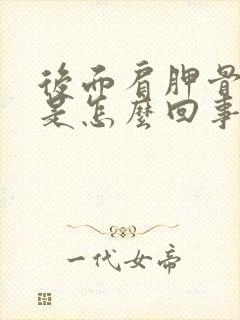 後面肩胛骨
是怎麼回事
一代女帝